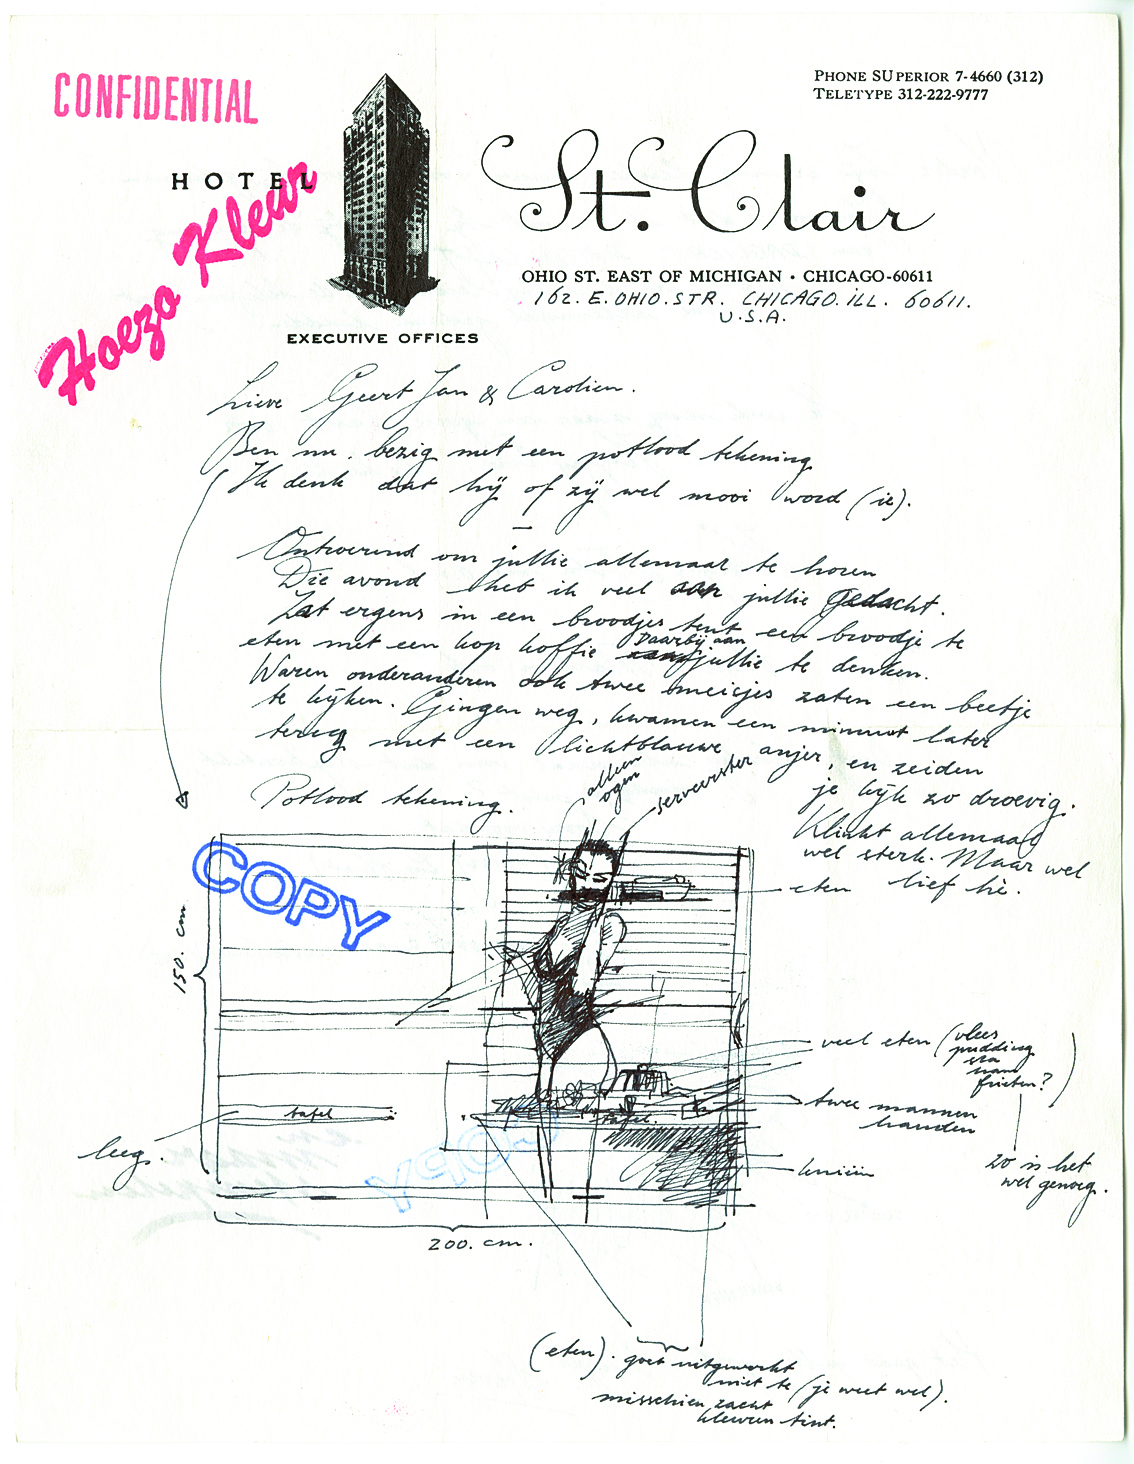 CONFIDENTIAL
PHONE SUPERIOR 7-4660 (312)
TELETYPE 312-222-9777
HOTEL
St. Clair
Hoezo Kleur
OHIO ST. EAST OF MICHIGAN · CHICAGO-60611
162. E. OHIO. STR. CHICAGO. ILL. 60611.
U.S.A.
EXECUTIVE OFFICES
Lieve Geert Jan & Carolien.
Ben nu. bezig met een potlood tekening
Ik denk dat hij of zij wel mooi word (ie).
Ontroerend om jullie allemaal te horen
Die avond heb ik veel aan jullie gedacht.
Zat ergens in een broodjes tent een broodje te
eten met een kop koffie Daarbij aan jullie te denken.
Waren onderanderen ook twee meisjes zaten een beetje
te kijken. Gingen weg, kwamen een minuut later
terug met een lichtblauwe anjer, en zeiden
je kijk zo droevig.
Klinkt allemaal
wel sterk. Maar wel
lief hè.
Potlood tekening.
alleen
ogen
serveerster
COPY
eten
150. cm
veel eten (vlees
pudding
sla
ham
frieten?)
tafel
tafel.
twee mannen
handen
leeg.
knieën
zo is het
wel genoeg.
COPY
200. cm.
(eten). goet uitgewerkt
niet te (je weet wel).
misschien zacht
kleuren tint.